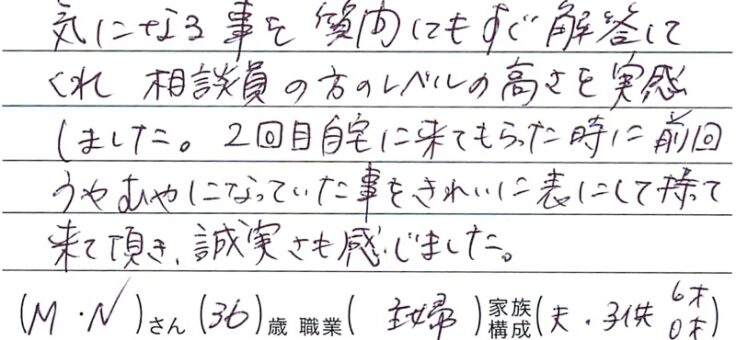 気になる事を質問してもすぐ解答して
くれ 相談員の方のレベルの高さを実感
しました。2回目自宅に来てもらった時に前回
うやむやになっていた事をきれいに表にして持って
来て頂き、誠実さも感じました。
(M・N)さん(36)歳 職業( 主婦 )家族構成(夫・子供 6才 0才)